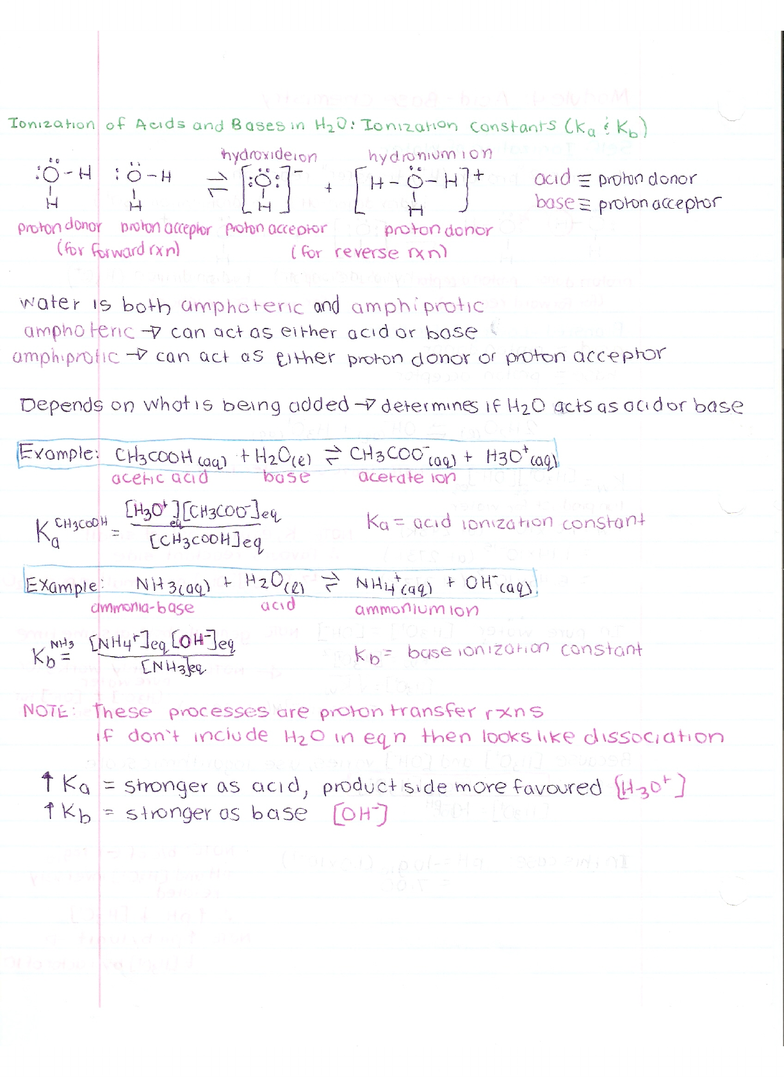 Ionization of Acids and Bases in H2O: Ionization Constants (Ka & Kb)
hydroxide ion hydronium ion
:Ö-H :Ö-H ⇌ [:Ö:]⁻ + [H-Ö-H]⁺ acid ≡ proton donor
H H H H base ≡ proton acceptor
proton donor proton acceptor proton acceptor proton donor
(for forward rxn) (for reverse rxn)
water is both amphoteric and amphiprotic
amphoteric → can act as either acid or base
amphiprotic → can act as either proton donor or proton acceptor
Depends on what is being added → determines if H2O acts as acid or base
Example: CH3COOH(aq) + H2O(l) ⇌ CH3COO⁻(aq) + H3O⁺(aq)
acetic acid base acetate ion
Ka^CH3COOH = [H3O⁺]eq[CH3COO⁻]eq / [CH3COOH]eq Ka = acid ionization constant
Example: NH3(aq) + H2O(l) ⇌ NH4⁺(aq) + OH⁻(aq)
ammonia-base acid ammonium ion
Kb^NH3 = [NH4⁺]eq[OH⁻]eq / [NH3]eq Kb = base ionization constant
NOTE: These processes are proton transfer rxns
if don't include H2O in eqn then looks like dissociation
↑ Ka = stronger as acid, product side more favoured [H3O⁺]
↑ Kb = stronger as base [OH⁻]